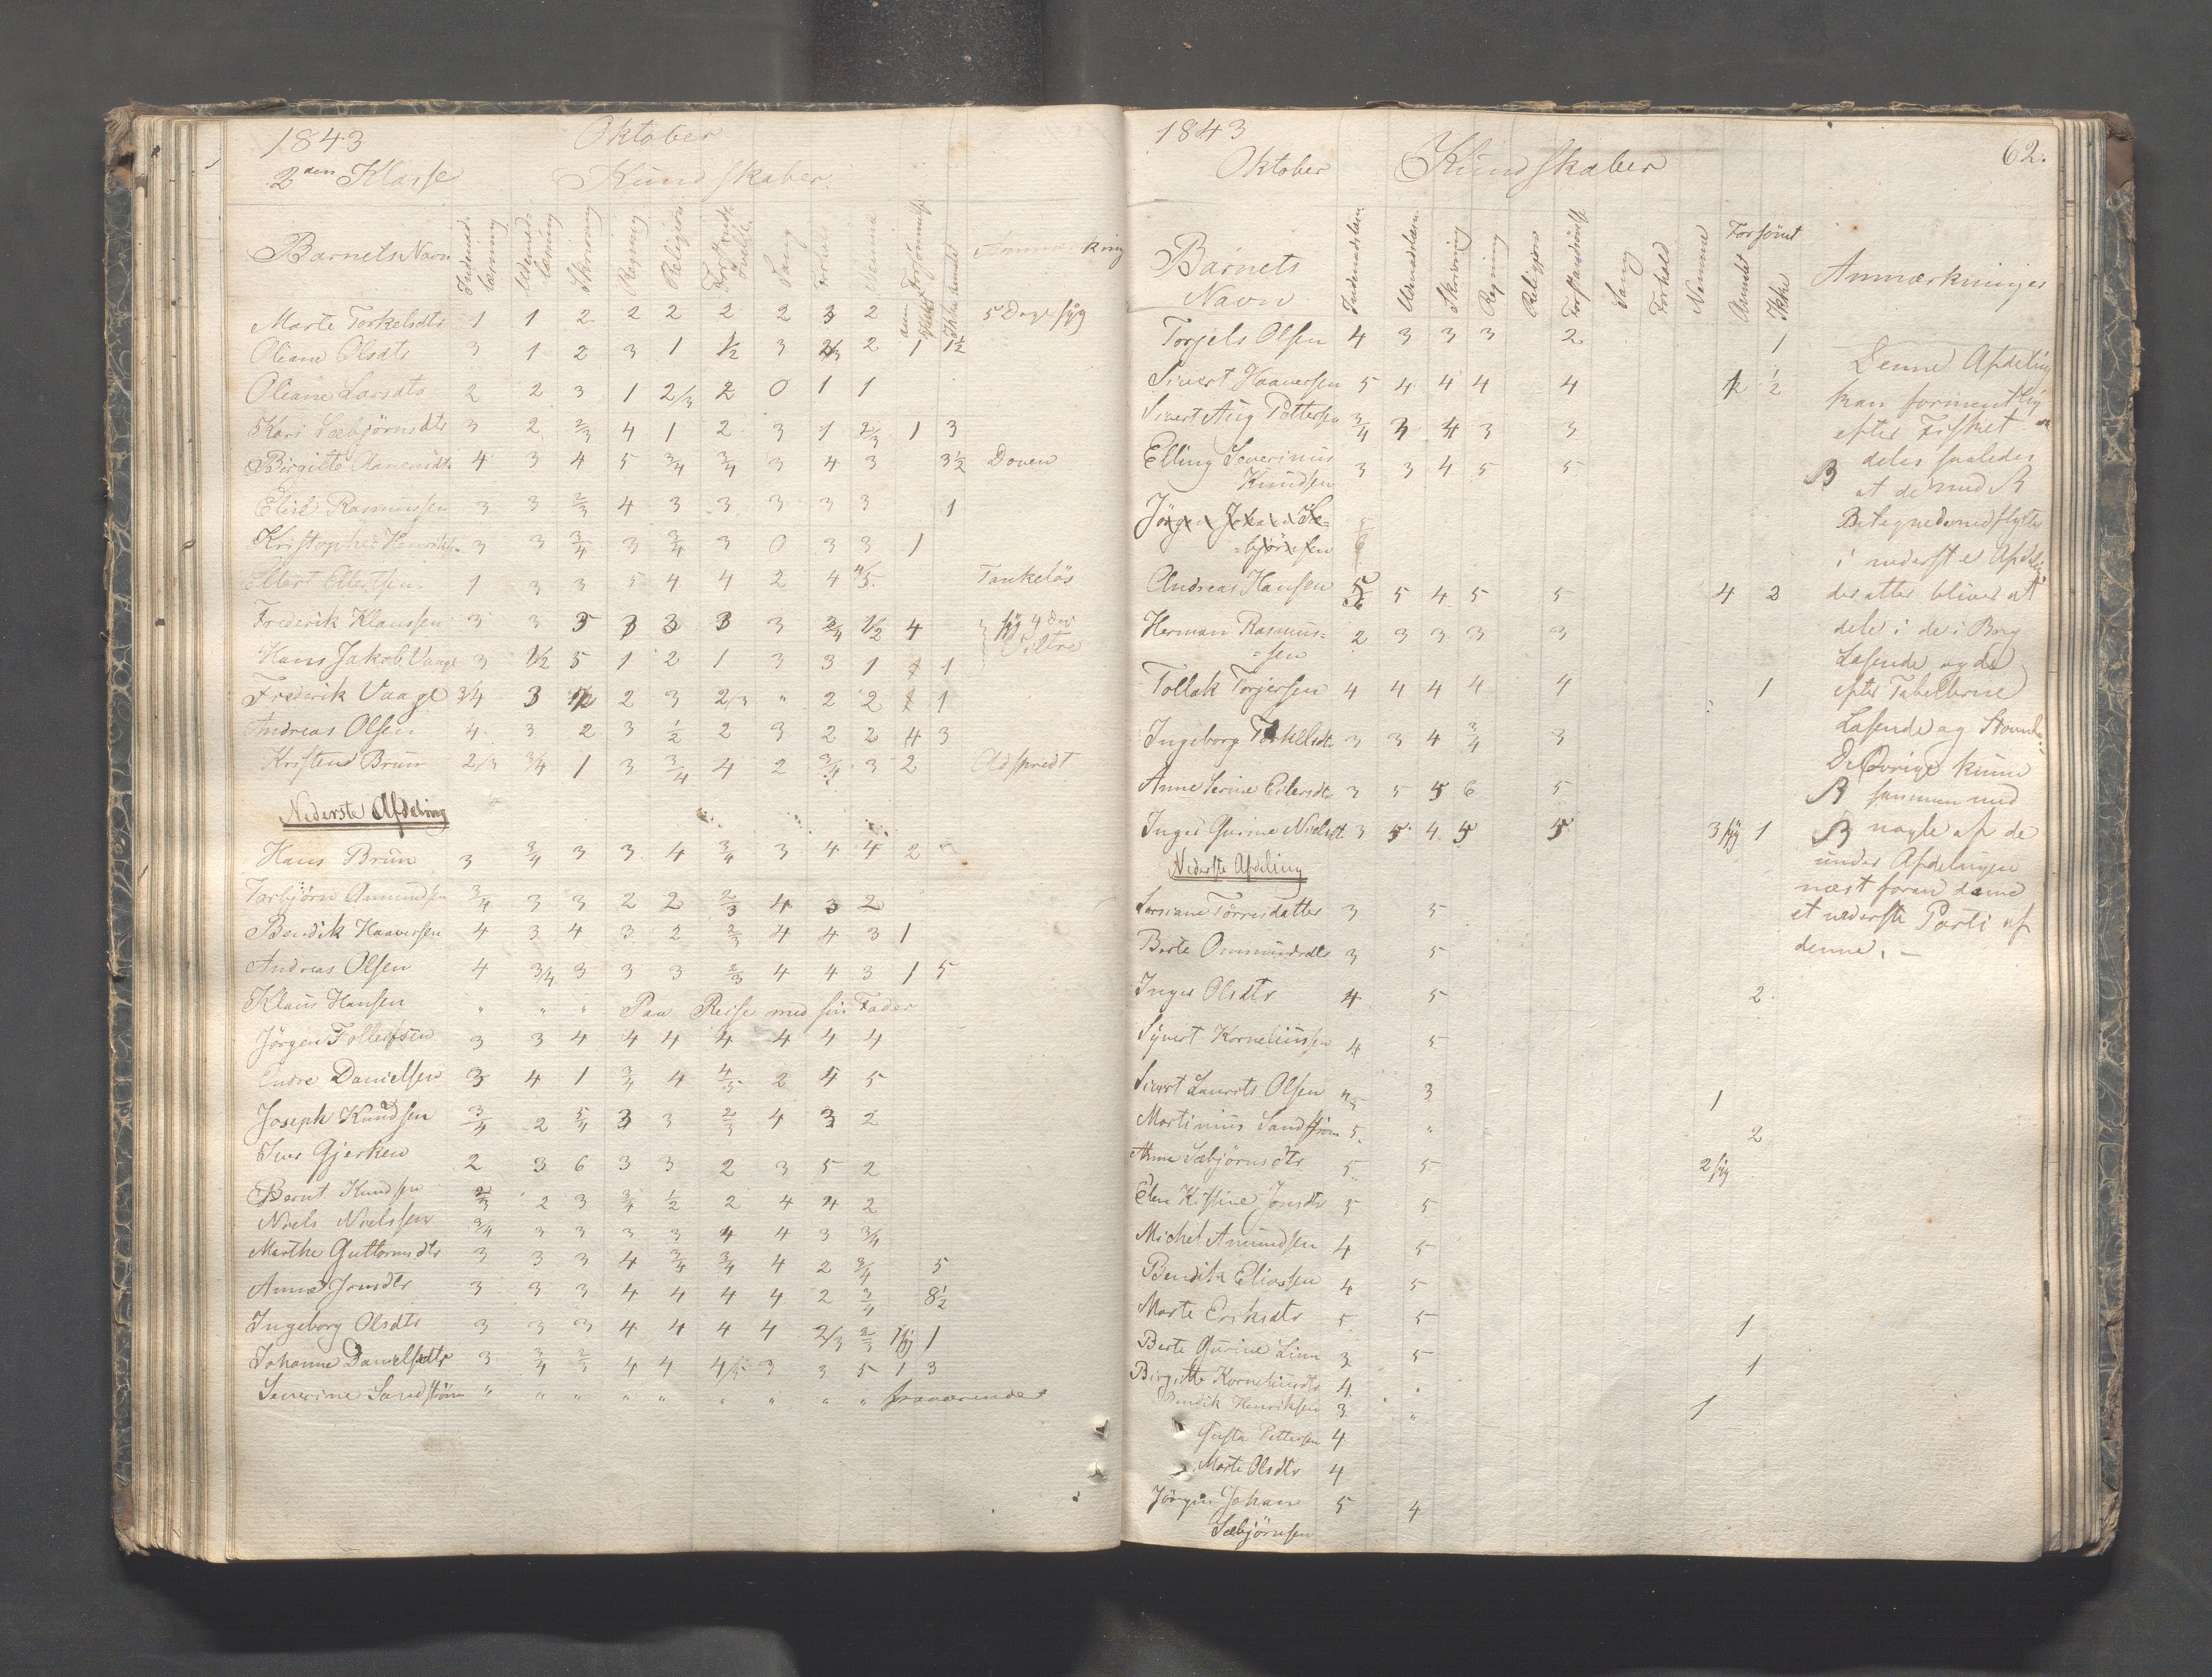 1843 Oktober
2den Klasse Kundskaber
Barnets Navn Indenad- læsning Udenad- læsning Skrivning Regning Religion Forstands- øvelse Sang Forhold Nemme Forsömmelse Anmærkning
Marte Torkelsdtr 1 1 2 2 2 2 2 3 2 5 Dage syg
Oliane Olsdtr 3 1 2 3 1 1/2 3 2/3 2 1 1 1/2
Oliane Larsdtr 2 2 3 1 2/3 2 0 1 1
Kari Sæbjörnsdtr 3 2 2/3 4 1 2 3 1 2/3 1 3
Birgitte 4 3 4 5 3/4 3/4 3 4 3 3 1/2 Doven
Elise Rasmussen 3 3 2/3 4 3 3 3 3 3 1
Kristopher Henriksen 3 3 3/4 3 3/4 3 0 3 3 1
Ellert Ellertsen 1 3 3 5 4 4 2 4 4/5 Tankelös
Frederik Klaussen 3 3 5 3 3 3 3 3/4 1/2 4 syg 4 Da
Hans Jakob Vaage 3 1/2 5 1 2 1 3 3 1 1 1
Frederik Vaage 3/4 3 1/2 2 3 2/3 " 2 2 1 1
Andreas Olsen 4 3 2 3 1/2 2 3 2 2 4 3
Kristend Bruun 2/3 3/4 1 3 3/4 4 2 3/4 3 2 Adspredt
Nederste Afdeling
Hans Brün 3 3/4 3 3 4 3/4 3 4 4 2
Torbjörn Amundsen 3/4 3 3 2 2 2/3 4 3 2
Bendik Haaversen 4 3 4 3 2 2/3 4 4 3 1
Andreas Olsen 4 3/4 3 3 3 2/3 4 4 3 1 5
Klaus Hansen " " " Paa Reise med sin Fader
Jörgen Folleifsen 3 3 4 4 4 4 4 4 4
Endre Danielsen 3 4 1 3/4 4 4/5 2 4 5
Joseph Knudsen 3/4 2 5/4 3 3 2/3 4 3 2
Iver Gjerken 2 3 6 3 3 2 3 5 2
Bernt Knudsen 2/3 2 3 3/4 1/2 2 4 4 2
Niels Nielssen 3/4 3 3 3 3 4 4 3 3/4
Marthe Guttormsdtr 3 3 3 4 3/4 3/4 4 2 3/4 5
Anne Jonsdtr 3 3 3 4 4 4 4 2 3/4 8 1/2
Ingeborg Olsdtr 3 3 3 4 4 4 4 2/3 2/3 1 syg 1
Johanne Danielsdtr 3 3/4 2/3 4 4 4/5 3 3 5 1 3
Severine Sandström " " " " " " " " " fraværende
1843
Oktober Kundskaber 62.
Barnets Navn Indenadslæsn Udenadslæsn Skrivning Regning Religion Forstandsøvels Sang Forhold Nemme Forsömt Anmeldt Ikke Anmærkninger
Torjels Olsen 4 3 3 3 2 1
Sivert Haaversen 5 4 4 4 4 1/2 1/2
Sivert Aug Pettersen 3/4 3 4 3 3
Elling Severinus Knudsen 3 3 4 5 5
Jörgen Johan Sæ- =björnsen 5/6
Andreas Hansen 5/6 5 4 5 5 4 2
Herman Rasmus= =sen 2 3 3 3 3
Tollak Torjersen 4 4 4 4 4 1
Ingeborg Torkelsdtr 3 3 4 3/4 3
Anne Serine Eilersdtr 3 5 5 6 5
Inger Gurine Nielsdtr 3 5 4 5 5 3 syg 1
Nederste Afdeling
Larsiane Törresdatter 3 5
Berte Ommundsdtr 3 5
Inger Olsdtr 4 5 2.
Syvert Korneliussen 4 5
Sivert Laurits Olsen 4/5 3 1
Martinius Sandström 5. " 2
Anne Sæbjörnsdtr 5 5 2 syg
Elen Kistine Jonsdtr 5 5
Michel Amundsen 4 5
Bendik Eliassen 4 5
Marte Eriksdtr 5 5 1
Berte Gurine Linn 3 5 1
Birgitte Korneliusdtr 4 "
Bendik Henriksen 3 " 1
Gusta Pettersen 4
Marte Olsdtr 4
Jörgen Johan 5 4
Sæbjörnsen
Denne Afdeling
kan formentlig
efter Fisket
deles saaledes
B at de med B
Betegnede nedflyttes
i nederste Afdeling
der atter bliver at
dele i de i Bog
Læsende og de
efter Tabellerne
Læsende og
De Övrige kunne
B sammen med
B nogle af de
under Afdelingen
næst foran danne
et nederste Parti af
denne. -